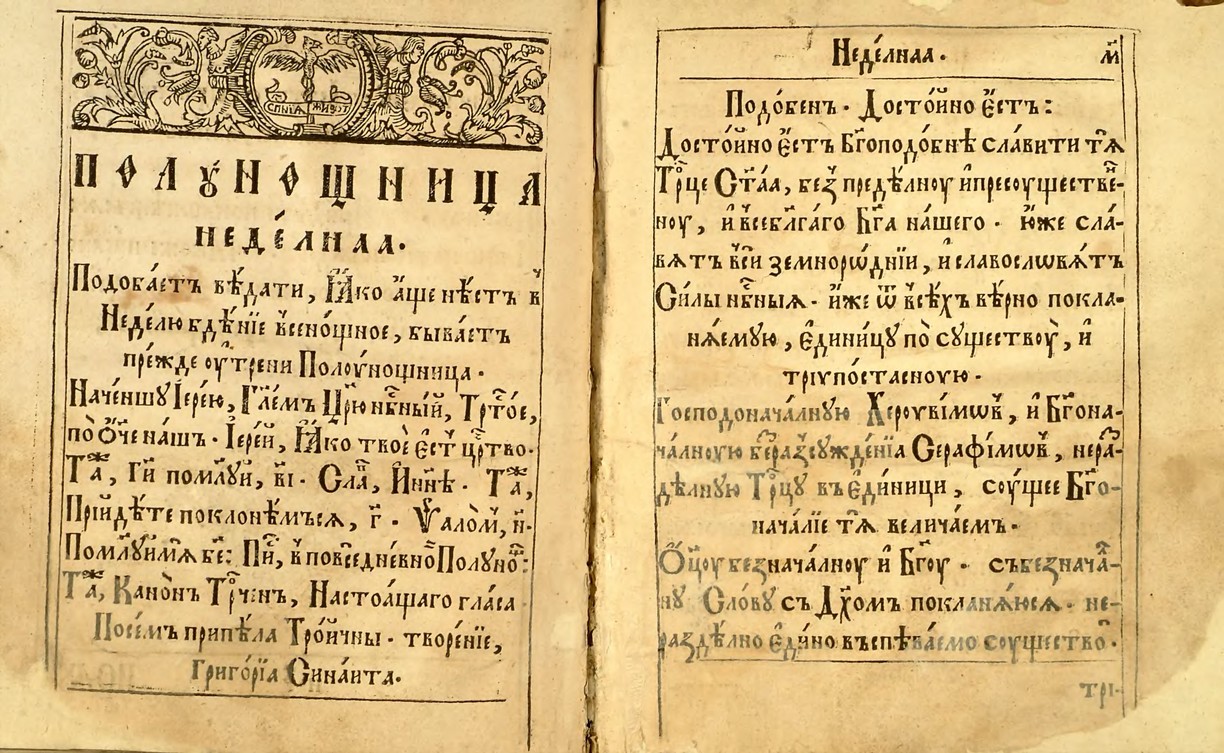 СПНІА ЖИВОТ
ПОЛꙊНОЩНИЦА
НЕДѢ́ЛНАА.
Подоба́етъ вѣ́дати, Ꙗ҆́ко а҆́ще нѣ́стъ в̾
Недѣ́лю бдѣ́нїе все́нощное, быва́етъ
пре́жде оу҆́трени Полоуно́щница.
Наче́ншꙋ Іере́ю, Гл҃емъ Цр҃ю нб҃ный, Трт҃ое,
по Ѻ҆́че на́шъ. Іере́й, Ꙗ҆́ко твоѐ е҆́ст̾ црт҃во.
Таⷤ, Ги҃ поми́лꙋй, в҃і. Слⷶа, И҆нн҃ѣ. Таⷤ,
Прїидѣ́те поклонѣ́мъсѧ, г҃. Ѱало́м̾, н҃.
Поми́лꙋймѧ бе҃: Пⷭи, в̾ повседне́вноⷨ Полꙋноⷳ:
Таⷤ, Кано́нъ Трⷪченъ, Настоѧ́щаго гла́са
Посе́мъ припѣ́ла Тро́ичны. творе́нїе,
Григо́рїа Сина́ита.
Недѣ́лнаа.
м҃
Подо́бенъ. Досто́йно е҆́стъ:
Досто́йно е҆́стъ Бг҃оподо́бнѣ сла́вити тѧ̀
Трⷪце Ст҃аа, без̾ предѣ́лноу и҆ пресоуще́стве-
ноу, и҆ всебл҃га́го Бг҃а на́шего. ю҆́же сла́-
вѧтъ всѝ земноро́днїи, и славосло́вѧтъ
Си́лы нб҃ныѧ. и҆́же ѿ всѣ́хъ вѣ́рно покла-
нѧ́емꙋю, є҆ди́ницꙋ по̀ сꙋществоу̀, и
трїѵпоста́сноую.
Господонача́лную Херо́уві́мѡв̾, и҆ Бг҃она-
ча́лноую без̾ разсꙋжде́нїа Серафі́мѡв̾, нераⷥ-
дѣ́лную Трⷪцꙋ въ є҆ди́ници, соу́щее Бг҃о-
нача́лїе тѧ̀ велича́емъ.
Ѻ҆ц҃оу безнача́лноу и҆ Бг҃оу. съ безнача́лⷧ-
нꙋ Сло́вꙋ съ Дх҃омъ поклана́юсѧ. не-
раздѣ́лно є҆ди́но въспѣва́емо соущество̀.
трі-